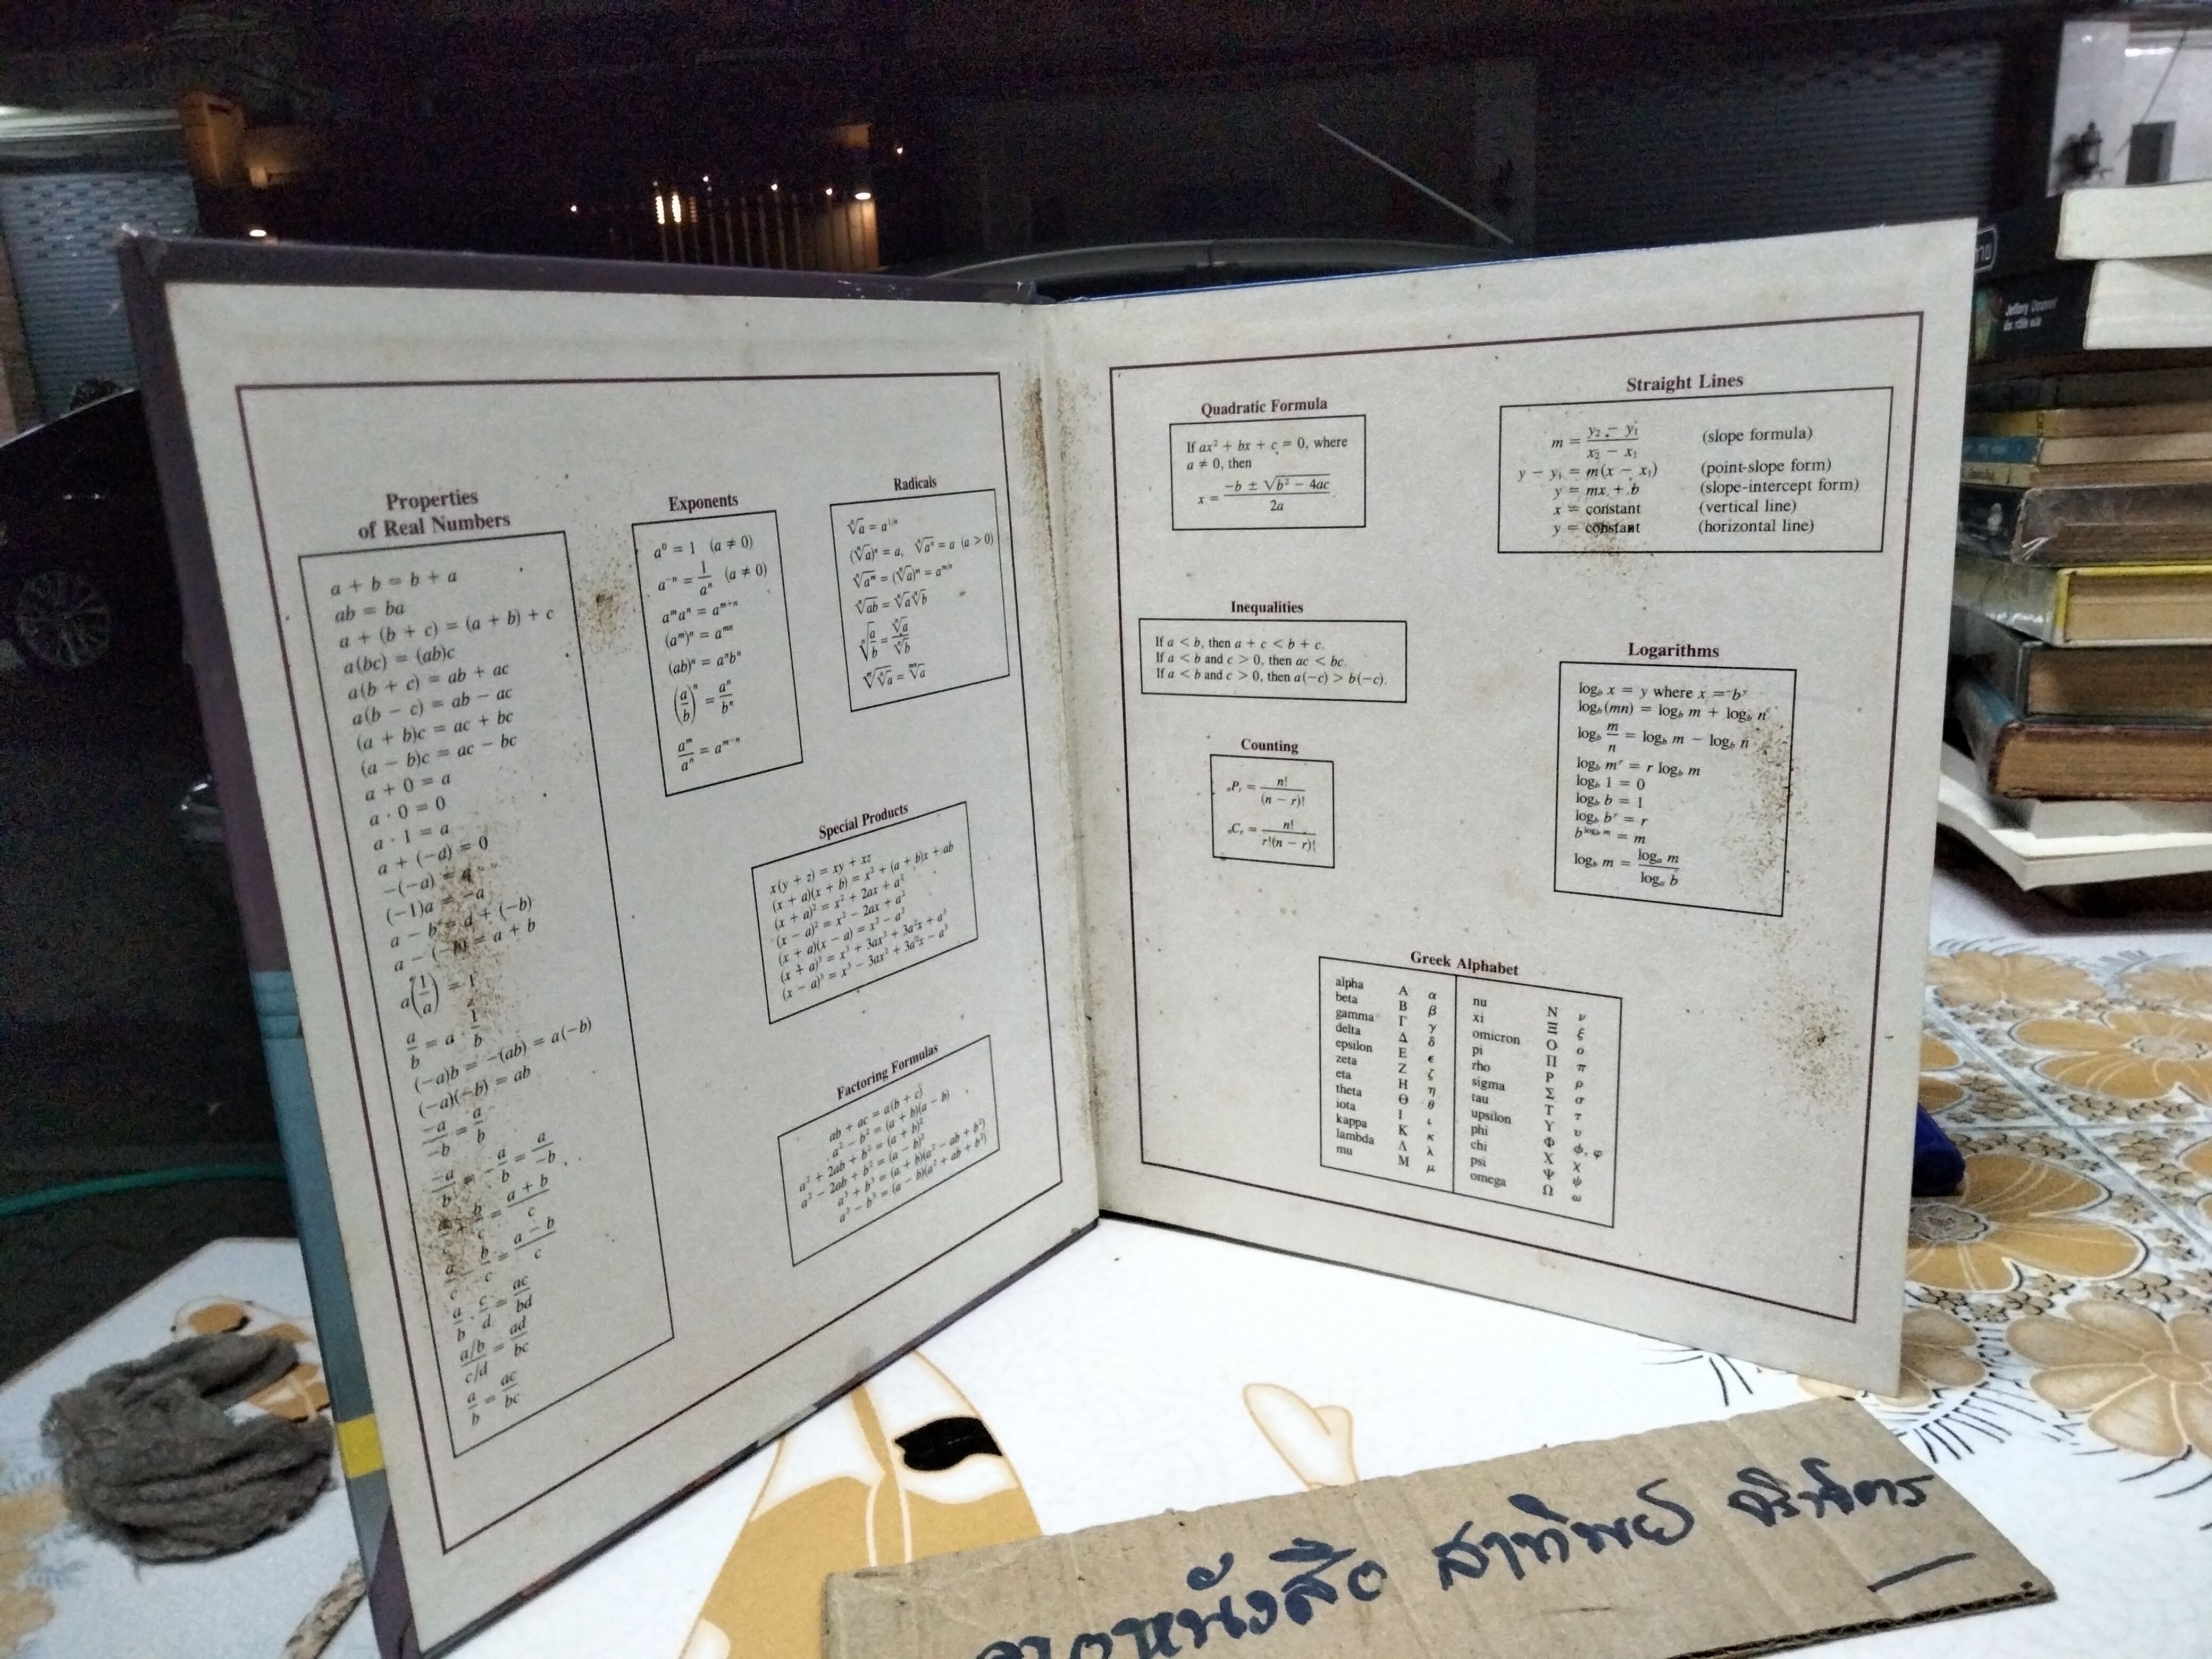 Properties
of Real Numbers
a + b = b + a
ab = ba
a + (b + c) = (a + b) + c
a(bc) = (ab)c
a(b + c) = ab + ac
a(b − c) = ab − ac
(a + b)c = ac + bc
(a − b)c = ac − bc
a + 0 = a
a · 0 = 0
a · 1 = a
a + (−a) = 0
−(−a) = a
(−1)a = −a
a − b = a + (−b)
a − (−b) = a + b
a(1/a) = 1
a/b = a · 1/b
(−a)b = −(ab) = a(−b)
(−a)(−b) = ab
−a/−b = a/b
−a/b = −a/b = a/−b
a/c + b/c = (a + b)/c
a/c − b/c = (a − b)/c
a/b · c/d = ac/bd
(a/b)/(c/d) = ad/bc
a/b = ac/bc
Exponents
a⁰ = 1 (a ≠ 0)
a⁻ⁿ = 1/aⁿ (a ≠ 0)
aᵐaⁿ = aᵐ⁺ⁿ
(aᵐ)ⁿ = aᵐⁿ
(ab)ⁿ = aⁿbⁿ
(a/b)ⁿ = aⁿ/bⁿ
aᵐ/aⁿ = aᵐ⁻ⁿ
Radicals
ⁿ√a = a^(1/n)
(ⁿ√a)ⁿ = a, ⁿ√aⁿ = a (a > 0)
ⁿ√aᵐ = (ⁿ√a)ᵐ = a^(m/n)
ⁿ√ab = ⁿ√a ⁿ√b
ⁿ√(a/b) = ⁿ√a/ⁿ√b
ᵐ√ⁿ√a = ᵐⁿ√a
Special Products
x(y + z) = xy + xz
(x + a)(x + b) = x² + (a + b)x + ab
(x + a)² = x² + 2ax + a²
(x − a)² = x² − 2ax + a²
(x + a)(x − a) = x² − a²
(x + a)³ = x³ + 3ax² + 3a²x + a³
(x − a)³ = x³ − 3ax² + 3a²x − a³
Factoring Formulas
ab + ac = a(b + c)
a² − b² = (a + b)(a − b)
a² + 2ab + b² = (a + b)²
a² − 2ab + b² = (a − b)²
a³ + b³ = (a + b)(a² − ab + b²)
a³ − b³ = (a − b)(a² + ab + b²)
Quadratic Formula
If ax² + bx + c = 0, where
a ≠ 0, then
x = (−b ± √(b² − 4ac))/2a
Straight Lines
m = (y₂ − y₁)/(x₂ − x₁) (slope formula)
y − y₁ = m(x − x₁) (point-slope form)
y = mx + b (slope-intercept form)
x = constant (vertical line)
y = constant (horizontal line)
Inequalities
If a < b, then a + c < b + c.
If a < b and c > 0, then ac < bc.
If a < b and c > 0, then a(−c) > b(−c).
Counting
ₙPᵣ = n!/(n − r)!
ₙCᵣ = n!/r!(n − r)!
Logarithms
log_b x = y where x = bʸ
log_b (mn) = log_b m + log_b n
log_b m/n = log_b m − log_b n
log_b mʳ = r log_b m
log_b 1 = 0
log_b b = 1
log_b bʳ = r
b^(log_b m) = m
log_b m = log_a m/log_a b
Greek Alphabet
alpha Α α nu Ν ν
beta Β β xi Ξ ξ
gamma Γ γ omicron Ο ο
delta Δ δ pi Π π
epsilon Ε ϵ rho Ρ ρ
zeta Ζ ζ sigma Σ σ
eta Η η tau Τ τ
theta Θ θ upsilon Υ υ
iota Ι ι phi Φ ϕ, φ
kappa Κ κ chi Χ χ
lambda Λ λ psi Ψ ψ
mu Μ μ omega Ω ω
หนังสือ สาทิพย์